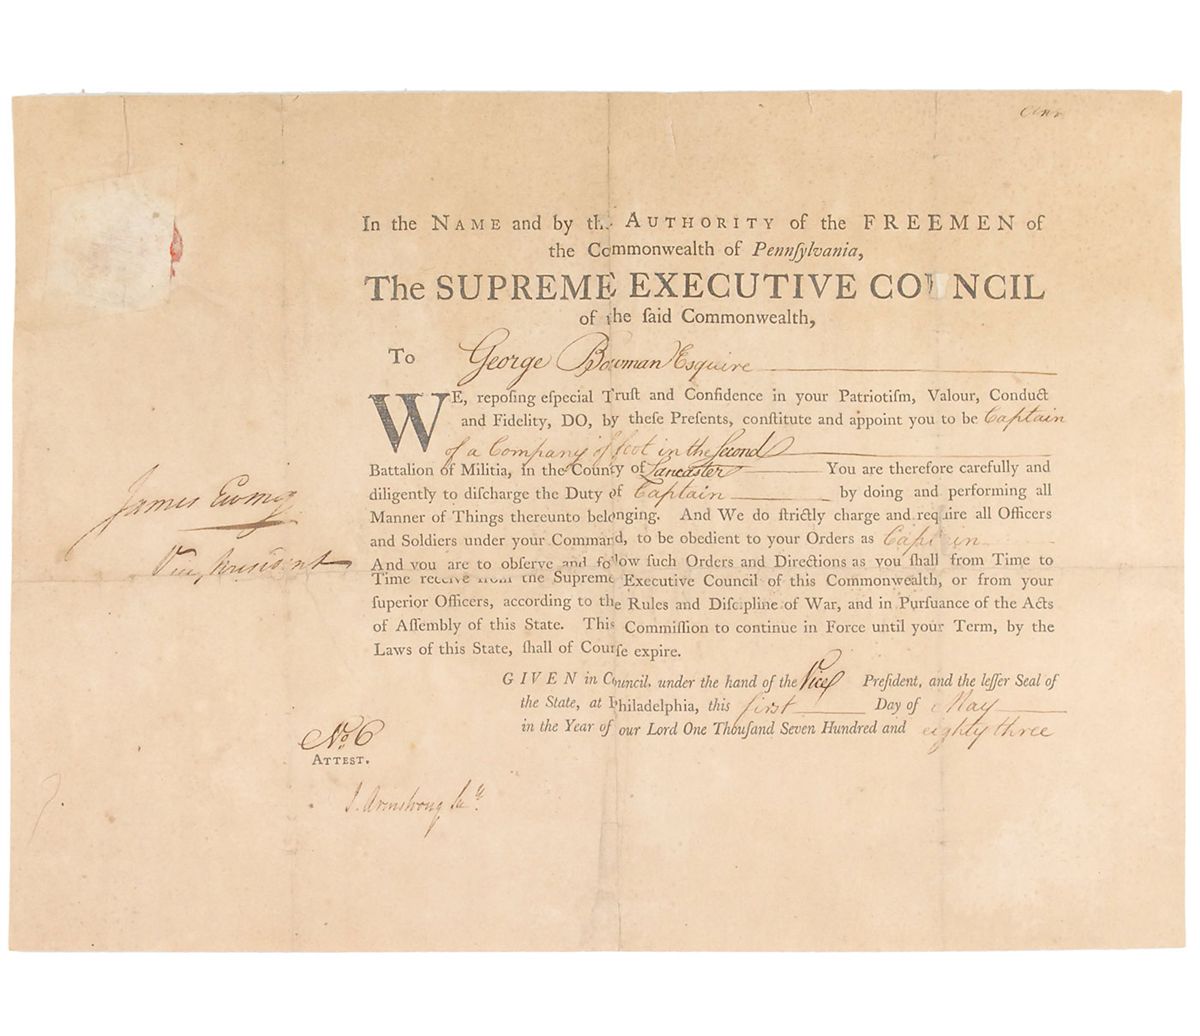 In the NAME and by the AUTHORITY of the FREEMEN of
the Commonwealth of Pennſylvania,
The SUPREME EXECUTIVE COUNCIL
of the ſaid Commonwealth,
To George Bowman Esquire
WE, repoſing eſpecial Truſt and Confidence in your Patriotiſm, Valour, Conduct
and Fidelity, DO, by theſe Preſents, conſtitute and appoint you to be Captain
of a Company of foot in the Second
Battalion of Militia, in the County of Lancaster You are therefore carefully and
diligently to diſcharge the Duty of Captain by doing and performing all
Manner of Things thereunto belonging. And We do ſtrictly charge and require all Officers
and Soldiers under your Command, to be obedient to your Orders as Captain
And you are to obſerve and follow ſuch Orders and Directions as you ſhall from Time to
Time receive from the Supreme Executive Council of this Commonwealth, or from your
ſuperior Officers, according to the Rules and Diſcipline of War, and in Purſuance of the Acts
of Aſſembly of this State. This Commiſſion to continue in Force until your Term, by the
Laws of this State, ſhall of Courſe expire.
GIVEN in Council, under the hand of the Vice Preſident, and the leſſer Seal of
the State, at Philadelphia, this first Day of May
in the Year of our Lord One Thouſand Seven Hundred and eighty three
James Ewing
Vice President
No. 6
ATTEST.
J. Armstrong Secy.